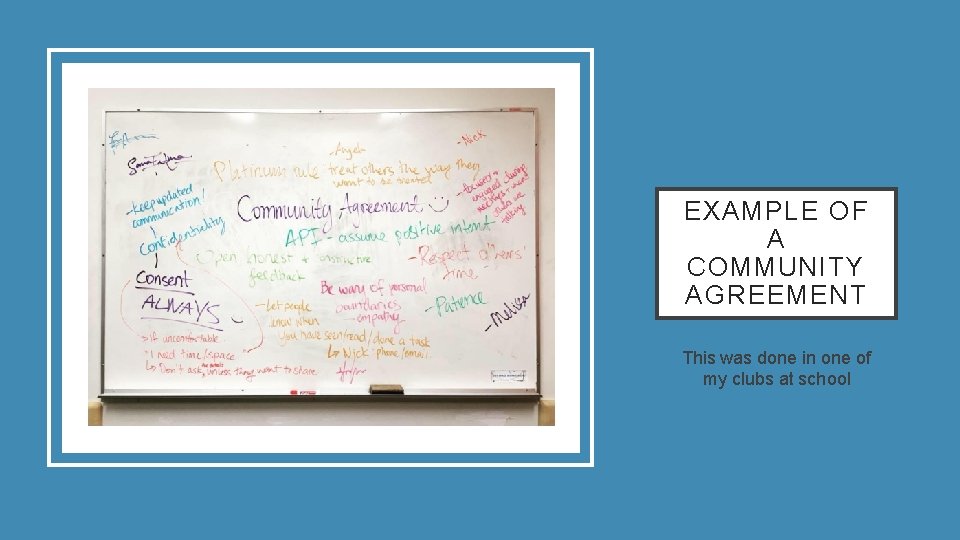 - Angela
- Nick
Platinum rule - treat others the way they
want to be treated
- keep updated
communication!
Community Agreement
- focused +
engaged during
meetings + when
others are
talking
Confidentiality
API - assume positive intent
Open honest + constructive
feedback
- Respect others'
time
Consent
ALWAYS
Be wary of personal
boundaries
- empathy
- Patience
- Melissa
- Let people
know when
you have seen/read/done a task
↳ Nick: phone/email
→ If uncomfortable
"I need time/space"
↳ Don't ask the details, unless they want to share
EXAMPLE OF
A
COMMUNITY
AGREEMENT
This was done in one of
my clubs at school